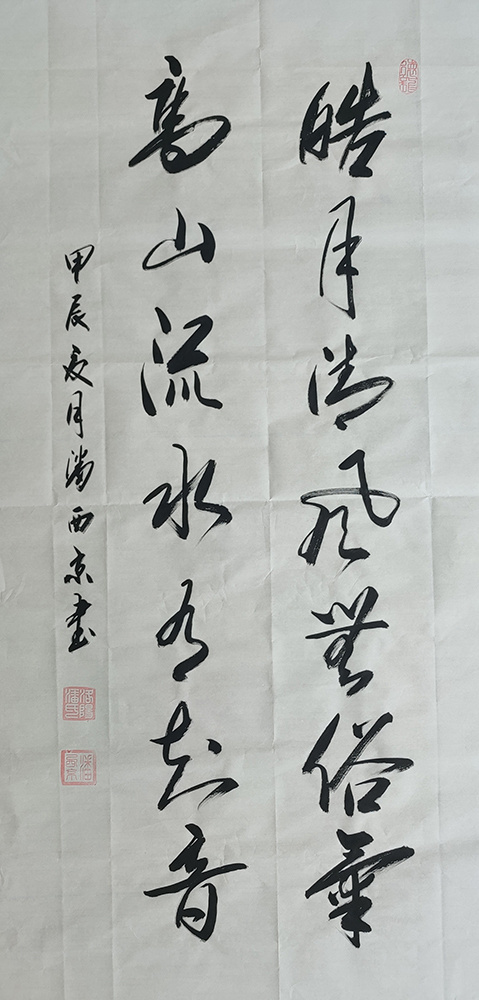 皓月清风無俗氣
高山流水有知音
甲辰夏月潘西京書